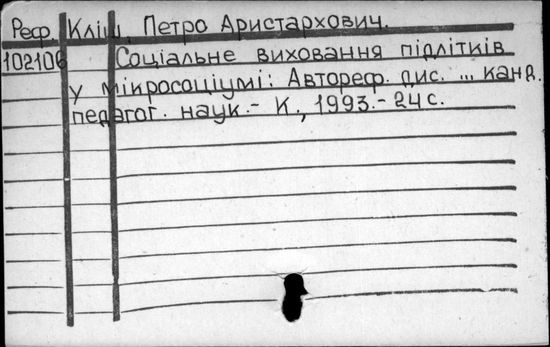 Реф. Кліш, Петро Аристархович.
102106 Соціальне виховання підлітків
у мікросоціумі: Автореф. дис. ... канд.
педагог. наук.- К., 1993.- 24 с.